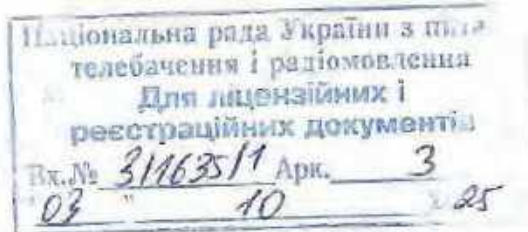 Національна рада України з пита
телебачення і радіомовлення
Для ліцензійних і
реєстраційних документі
Вх.№ 3/1635/1 Арк. 3
"03" 10 25